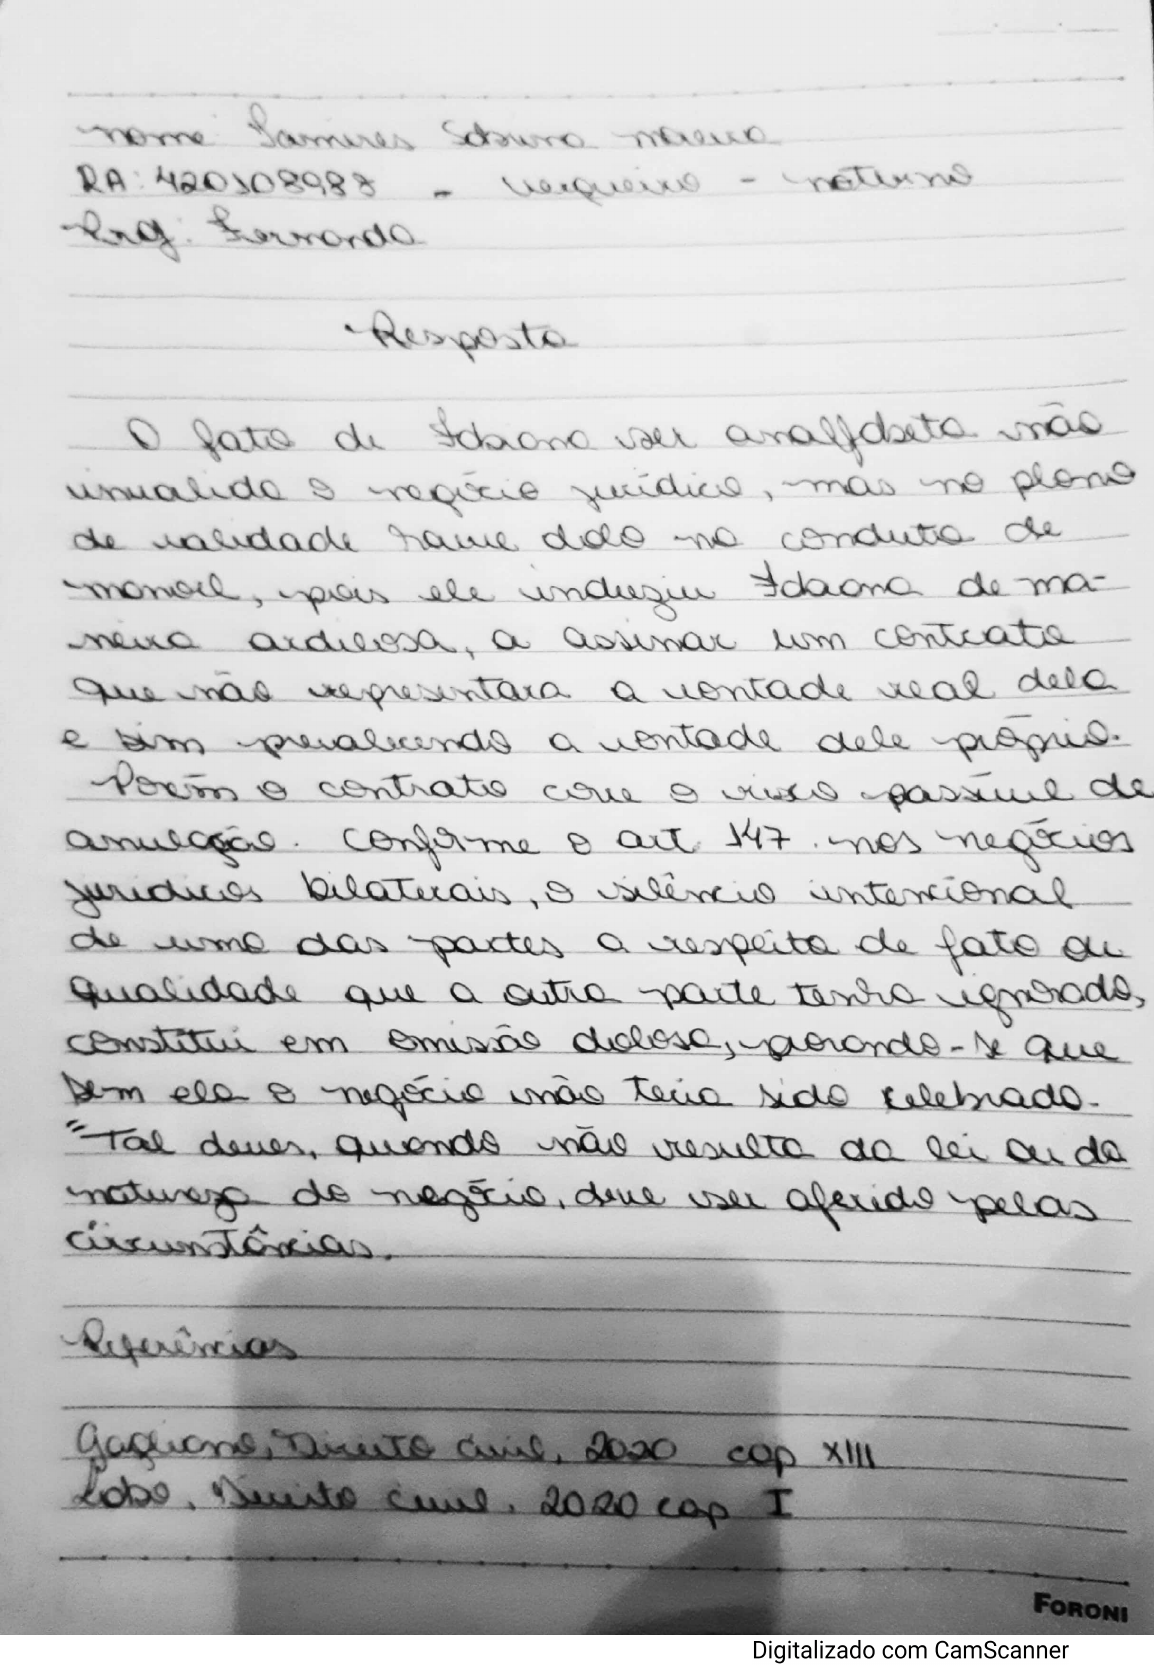 nome Tamires Sabino moreira
RA: 420108987 - vergueiro - noturno
Prof: Fernanda
Resposta
O fato de Idaona ser analfabeta não
invalida o negócio jurídico, mas no plano
de validade houve dolo na conduta de
manoel, pois ele induziu Idaona de ma-
neira ardilosa, a assinar um contrato
que não representara a vontade real dela
e sim prevalecendo a vontade dele próprio.
Porém o contrato corre o risco passível de
anulação. Conforme o art 147. nos negócios
jurídicos bilaterais, o silêncio intencional
de uma das partes a respeito de fato ou
qualidade que a outra parte tenha ignorado,
constitui em omissão dolosa, provando-se que
sem ela o negócio não teria sido celebrado.
"Tal dever, quando não resulta da lei ou da
natureza do negócio, deve ser aferido pelas
circunstâncias.
Referências
Gagliano, Direito Civil, 2020 cap XIII
Lobo, Direito Civil. 2020 cap I
FORONI
Digitalizado com CamScanner